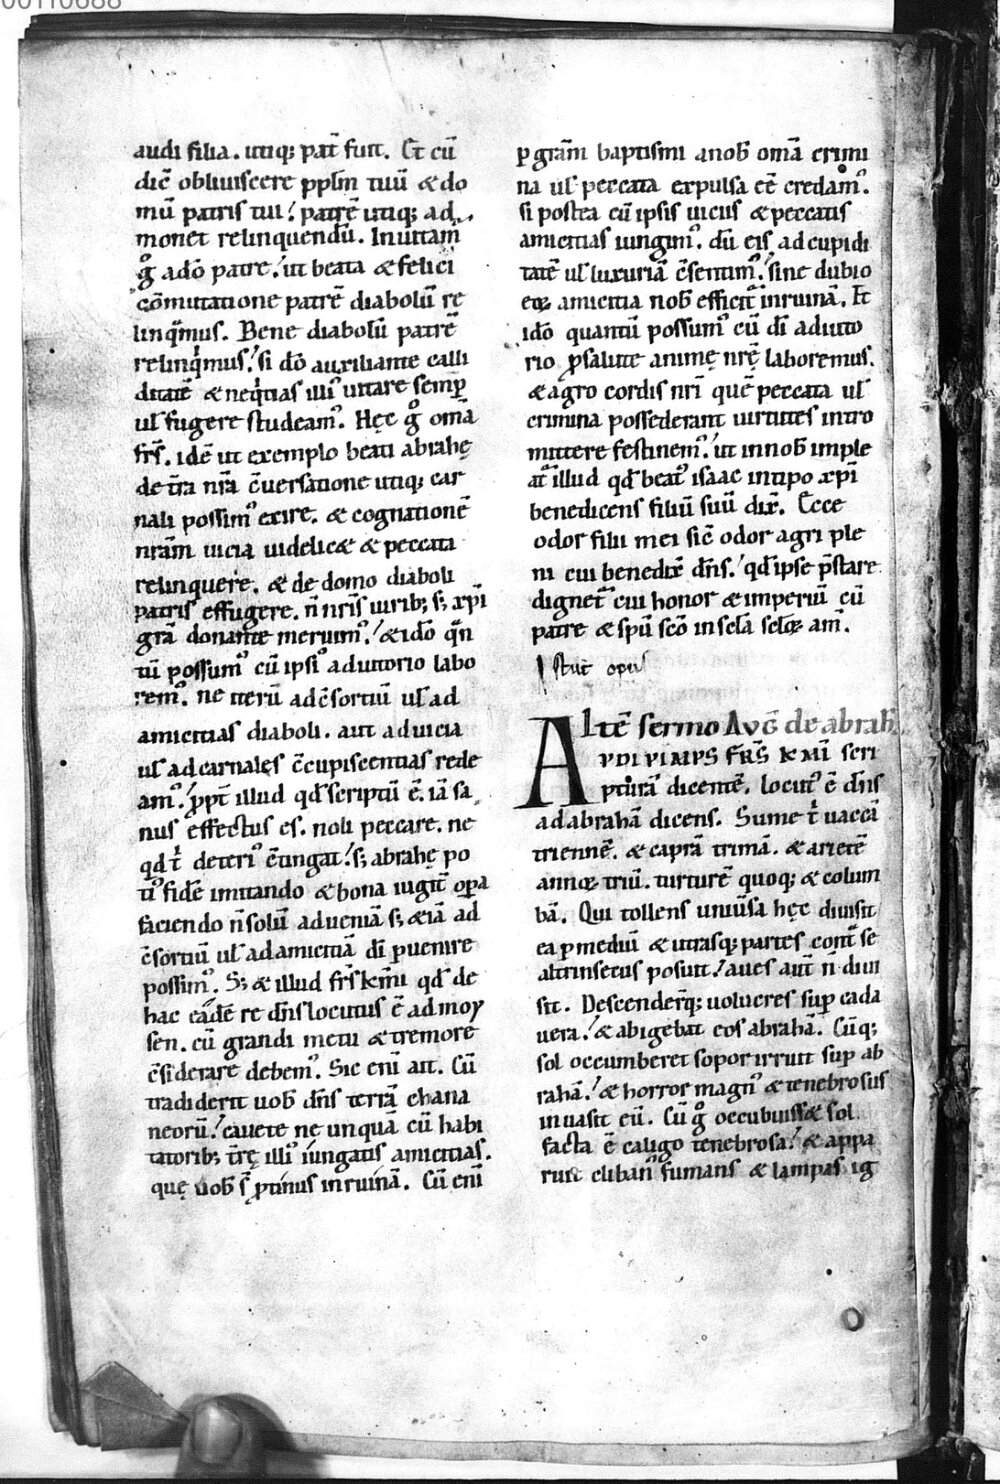 00110688
audi filia. utiq; pat̄ fuit. Et cū
dic̄ obliuiscere pp̄lm tuū & do
mū patris tui.' patrē utiq; ad
monet relinquendū. Inuitam̄
g̊ ad ō patre.' ut beata & felici
cōmutatione patrē diabolū re
linqᷓmus. Bene diabolū patrē
relinqͥmus.' si dō auxiliante calli
ditatē & neqͥtias illiꝰ uitare semp̄
ul̓ fugere studeamꝰ. Hęc g̊ om̄a
fr̄s. idē ut exemplo beati abrahę
de t̄ra nr̄a c̄uersatione utiq; car
nali possimꝰ exire. & cognationē
nr̄am uicia uidelic& & peccata
relinquere. & de domo diaboli
patris effugere. n̄ nr̄is uirib; s; xp̄i
gr̄a donante meruimꝰ.' & idō qᷓn
tū possumꝰ cū ipsiꝰ adiutorio labo
remꝰ. ne iterū ad c̄sortiū ul̓ ad
amicitias diaboli. aut ad uicia
ul̓ ad carnales c̄cupiscentias rede
amꝰ.' ꝓpt̄ illud qd̓ scriptū ē. iā sa
nus effectus es. noli peccare. ne
qd̓ tͥ deteriꝰ c̄tingat.' s; abrahę po
tiꝰ fidē imitando & bona iugit̄ oꝑa
faciendo n̄ solū ad ueniā s; & iā ad
c̄sortiū ul̓ ad amicitiā dī puenire
possimꝰ. S; & illud fr̄s km̄i qd̓ de
hac eadē re dn̄s locutus ē ad moy
sen. cū grandi metu & tremore
c̄siderare debemꝰ. Sic eni ait. Cū
tradiderit uob̄ dn̄s terrā chana
neorū.' cauete ne unquā cū habi
tatorib; t̄rę illiꝰ iungatis amicitias.
quę uob̄ s̄ ꝓtinus in ruinā. Cū eni
ꝑ grām baptismi a nob̄ om̄a crimi
na ul̓ peccata expulsa eē credamꝰ.
si postea cū ipsis uiciis & peccatis
amicitias iungimꝰ. dū eis ad cupidi
tatē ul̓ luxuriā c̄sentimꝰ.' sine dubio
eoꝝ amicitia nob̄ efficit̄ in ruinā. Et
idō quantū possumꝰ cū dī adiuto
rio ꝓ salute animę nrę̄ laboremus.
& agro cordis nr̄i quē peccata ul̓
crimina possederant uirtutes intro
mittere festinemꝰ.' ut in nob̄ imple
at̄ illud qd̓ beatꝰ isaac in tipo xp̄i
benedicens filiū suū dix̄. Ecce
odor filii mei sic̄ odor agri ple
ni cui benedix̄ dn̄s.' qd̓ ipse p̄stare
dignet̄ cui honor & imperiū cū
patre & sp̄u sc̄o in sc̄la sc̄loꝝ am̄.
Istuc opus
Altē sermo Avḡ de abrah̄
AVDIVIMVS FR̄S KMĪ scri
pturā dicentē. locutꝰ ē dn̄s
ad abrahā dicens. Sume tͥ uaccā
triennē. & caprā trimā. & arietē
annoꝝ triū. turturē quoq; & colum
bā. Qui tollens uniūsa hęc diuisit
ea ꝑ mediū & utrasq; partes cont̄ se
altrinsecus posuit.' aues aut̄ n̄ diui
sit. Descenderq̄; uolucres suꝑ cada
uera.' & abigebat eos abrahā. Cūq;
sol occumberet sopor irruit suꝑ ab
rahā.' & horror magnꝰ & tenebrosus
inuasit eū. Cū g̊ occubuiss& sol
facta ē caligo tenebrosa.' & appa
ruit clibanꝰ fumans & lampas ig